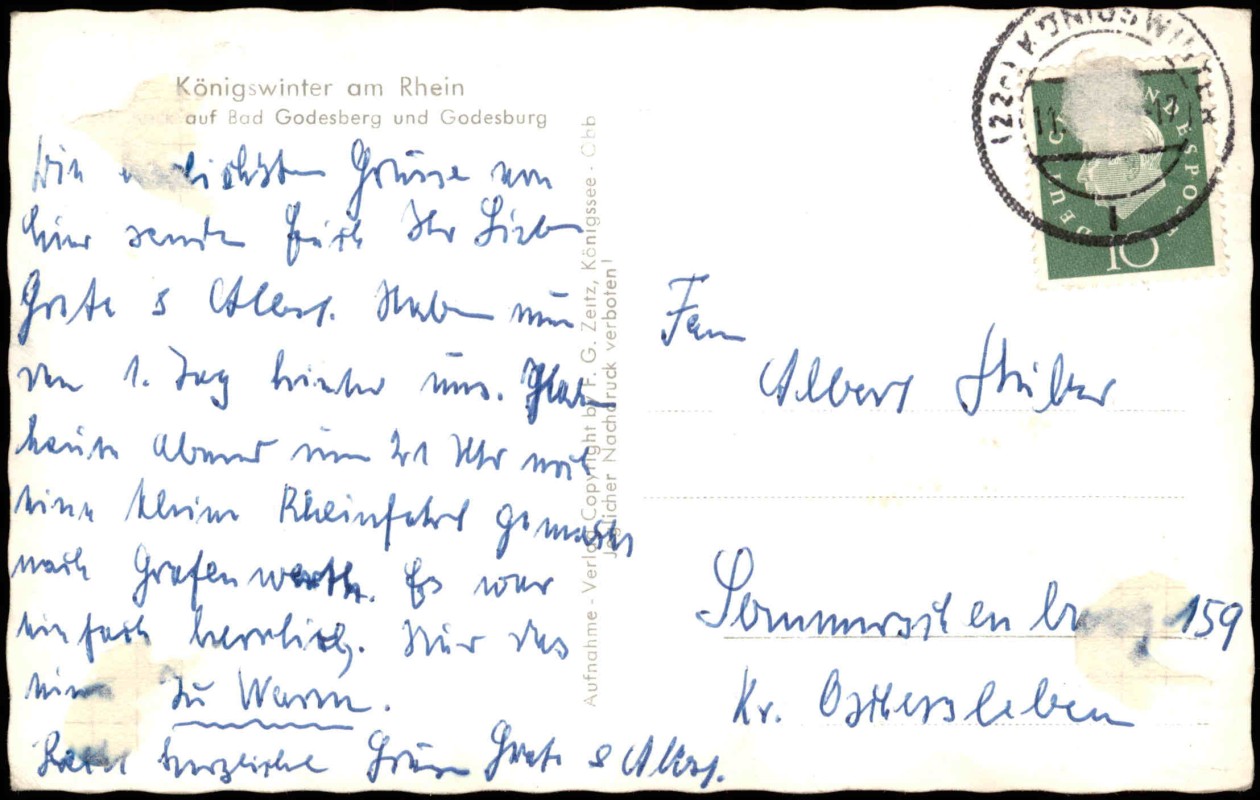 Königswinter am Rhein
auf Bad Godesberg und Godesburg
Die Grüsse von
hier sendet Euch Ihr Lieben
Grete & Albert. Haben nun
den 1. Tag hinter uns.
heute Abend um 21 Uhr noch
eine kleine Rheinfahrt gemacht
nach Grafenwerth. Es war
einfach herrlich. Nur das
eine zu Warm.
herzliche Grüsse Grete & Albert.
Aufnahme - Verlag Copyright by F. G. Zeitz, Königssee - Obb
Jeglicher Nachdruck verboten!
(22c) KÖNIGSWINTER
DEUTSCHE BUNDESPOST
10
Fam
Albert Stüber
159
Kr. Oschersleben